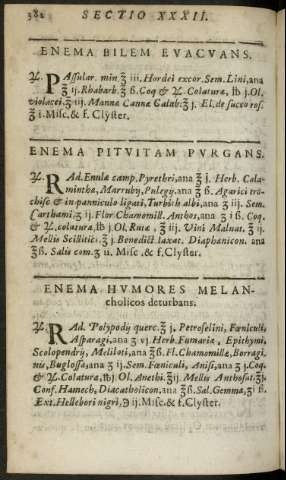 382 SECTIO XXXII.
ENEMA BILEM EVACVANS.
℞. PAssular. min ℥ iii. Hordei excor. Sem. Lini, ana
℥ ij. Rhabarb. ℥ ß. Coq & ℞. Colaturæ, ℔ j. Ol.
violacei ℥ iij. Mannæ Cannæ Calab: ℥ j. El. de succo ros.
℥ i. Misc. & f. Clyster.
ENEMA PITVITAM PVRGANS.
℞. RAd. Enulæ camp. Pyrethri, ana ʒ j. Herb. Cala-
minthæ, Marrubij, Pulegij, ana ʒ ß. Agarici tro-
chisc & in panniculo ligati, Turbith albi, ana ʒ iij. Sem.
Carthami, ʒ ij. Flor. Chamomill. Anthos, ana ʒ i ß. Coq.
& ℞, colatura, ℔ j. Ol. Rutæ, ℥ iij. Vini Maluat. ℥ ij.
Mellis Scillitici ℥ j. Benedict. laxat. Diaphanicon. ana
℥ ß. Salis com. ʒ ii. Misc., & f. Clyster.
ENEMA HVMORES MELAN-
cholicos deturbans.
℞. RAd. Polypodij querc. ℥ j. Petroselini, Fœniculi,
Asparagi, ana ʒ vj. Herb. Fumariæ, Epithymi,
Scolopendrij, Meliloti, ana ℥ ß. Fl. Chamomillæ, Borragi
nis, Buglossæ, ana ʒ ij. Sem. Fœniculi, Anisi, ana ʒ j. Coq.
& ℞. Colatura, ℔ j. Ol. Anethi. ℥ ij. Mellis Anthosat. ℥ j.
Conf. Hamech, Diacatholicon, ana ℥ ß. Sal. Gemmæ, ʒ i ß
Ext. Hellebori nigri, ℈ ij. Misc. & f. Clyster.